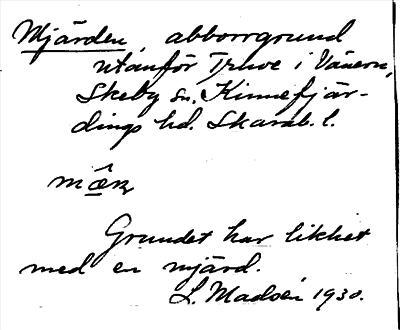 Mjärden, abborrgrund
utanför Truve i Vänern,
Skeby sn. Kinnefjär-
dings hd. Skarab. l.
Grundet har likhet
med en mjärd.
L. Madsén 1930.